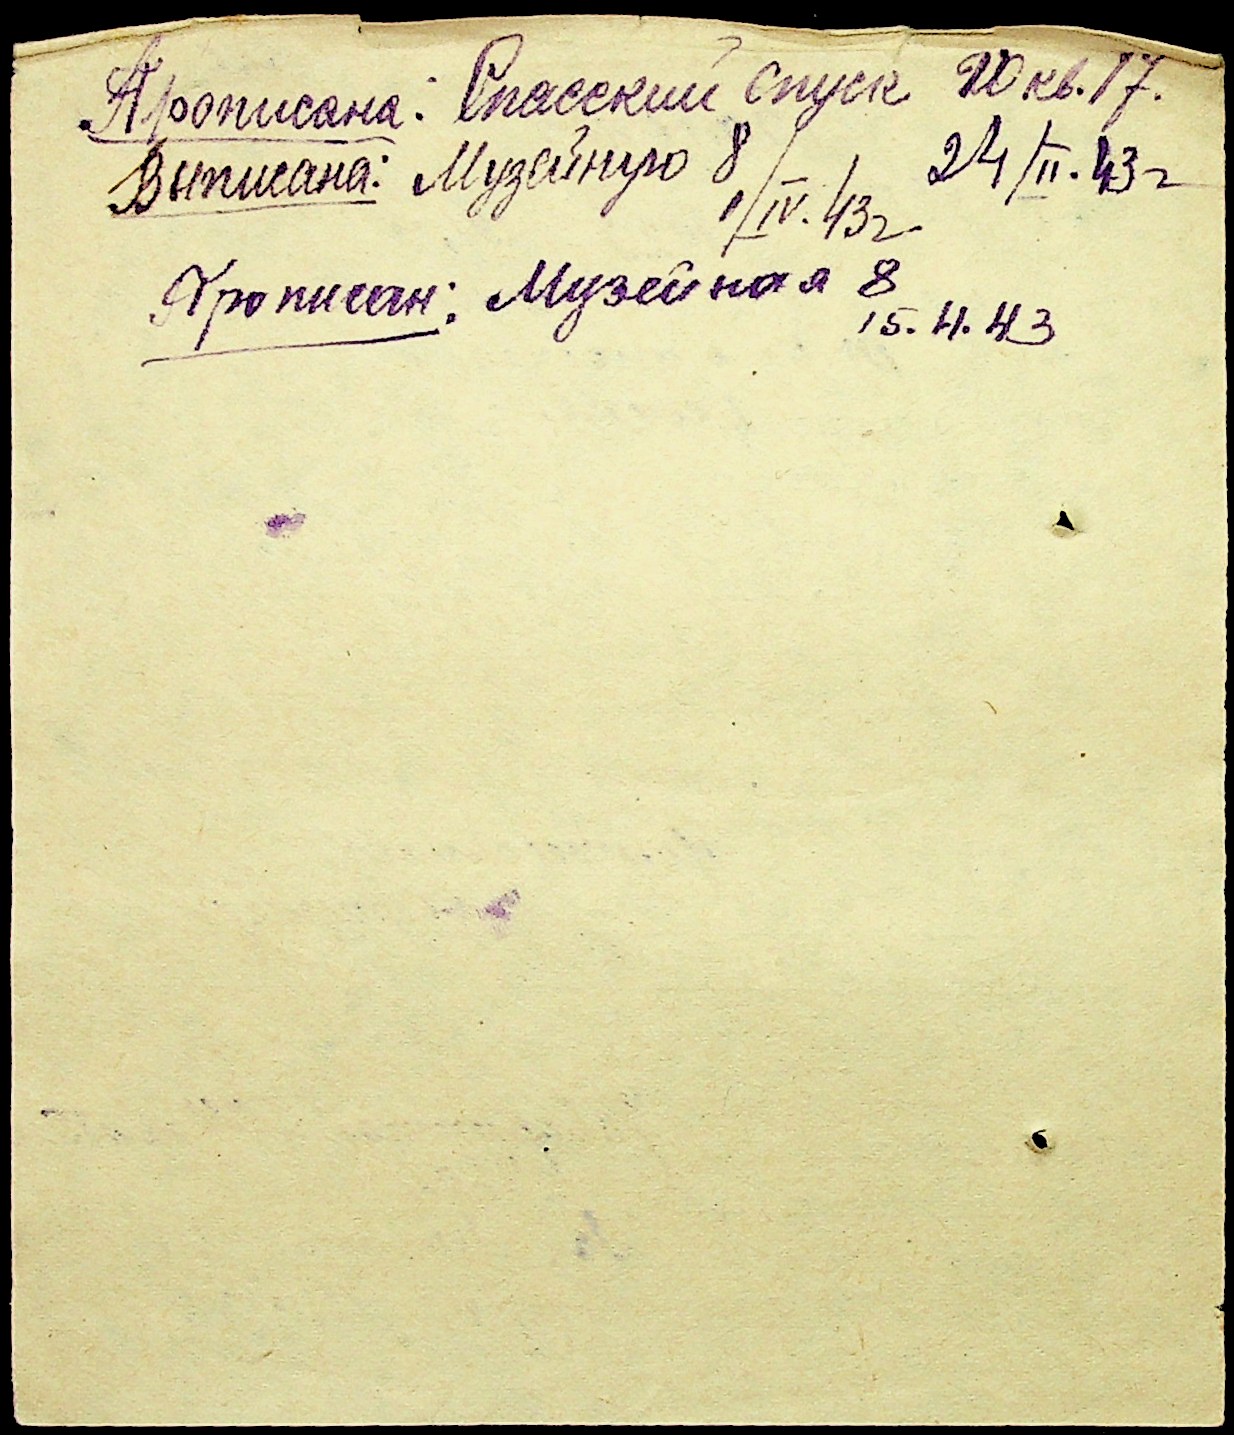 Прописана: Спасский спуск 10 кв. 17.
24/II. 43 г
Выписана: Музейную 8
1/IV. 43 г
Прописан: Музейная 8
15. 4. 43